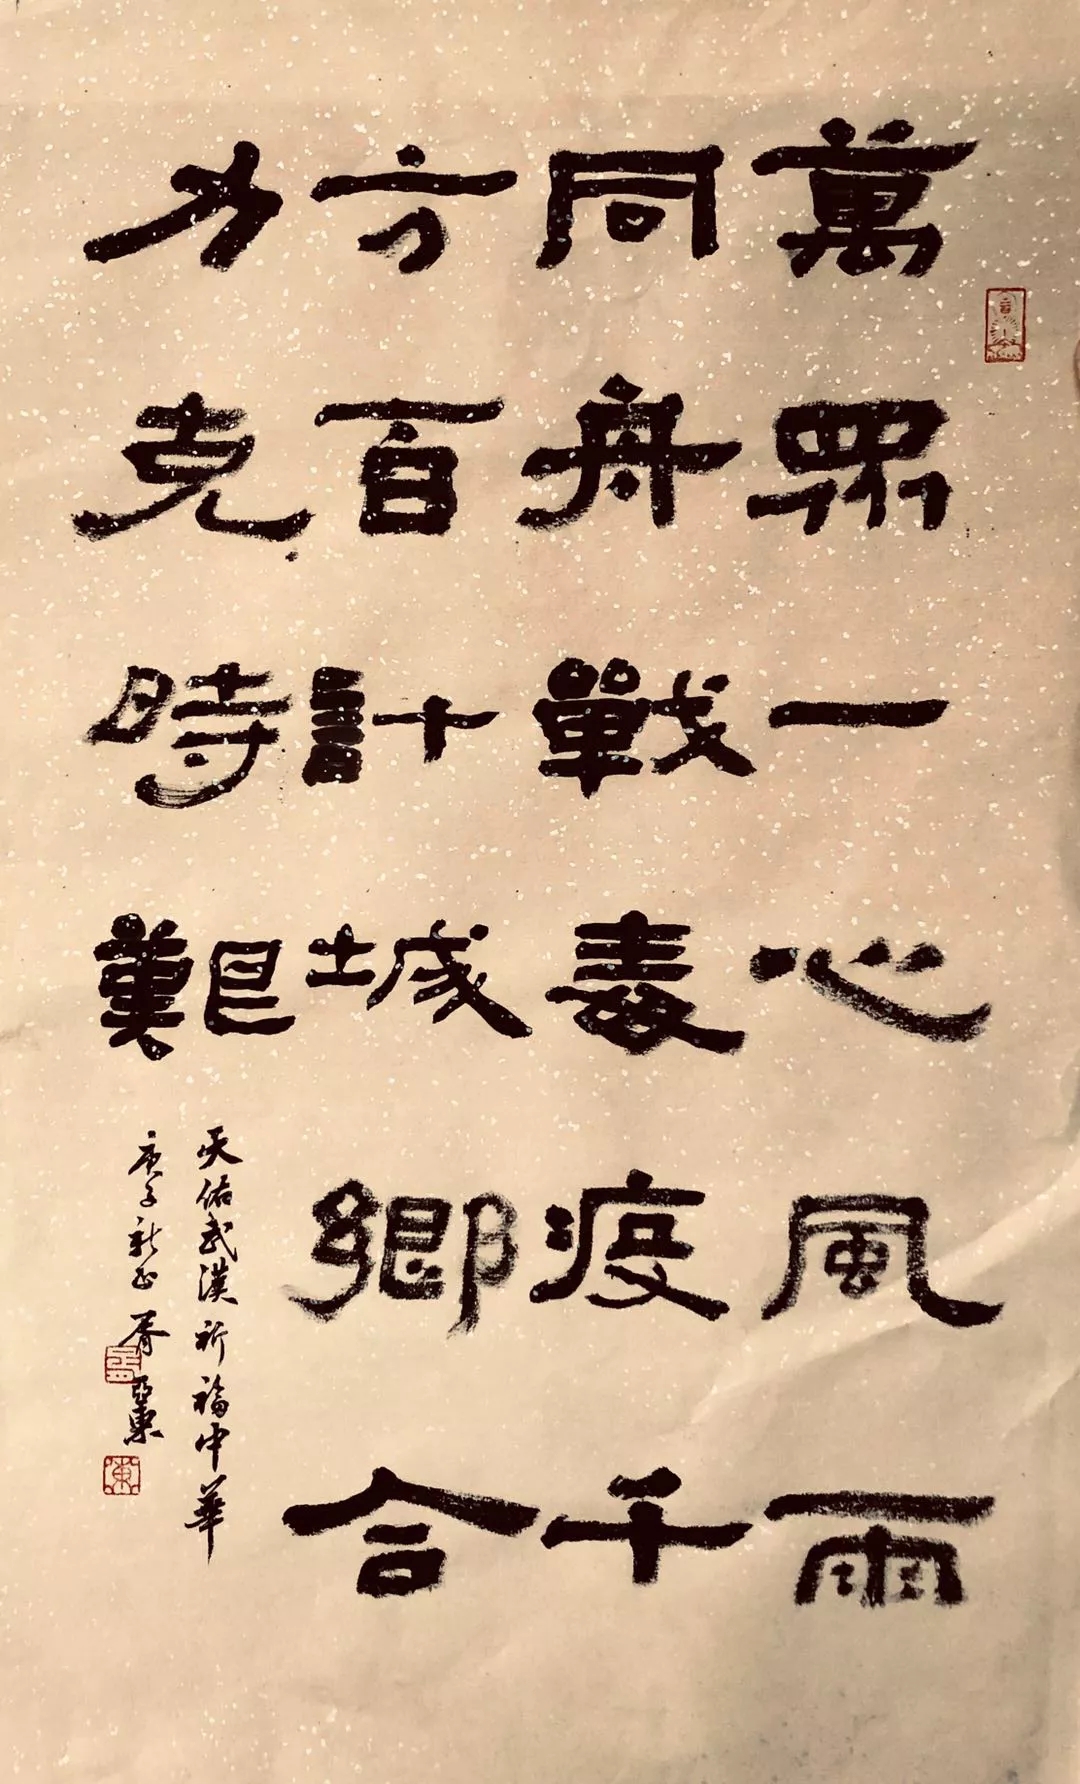 萬眾一心風雨
同舟戰毒疫千
方百計城鄉合
力克時艱
天佑武漢祈福中華
庚子新正胥亞東
東